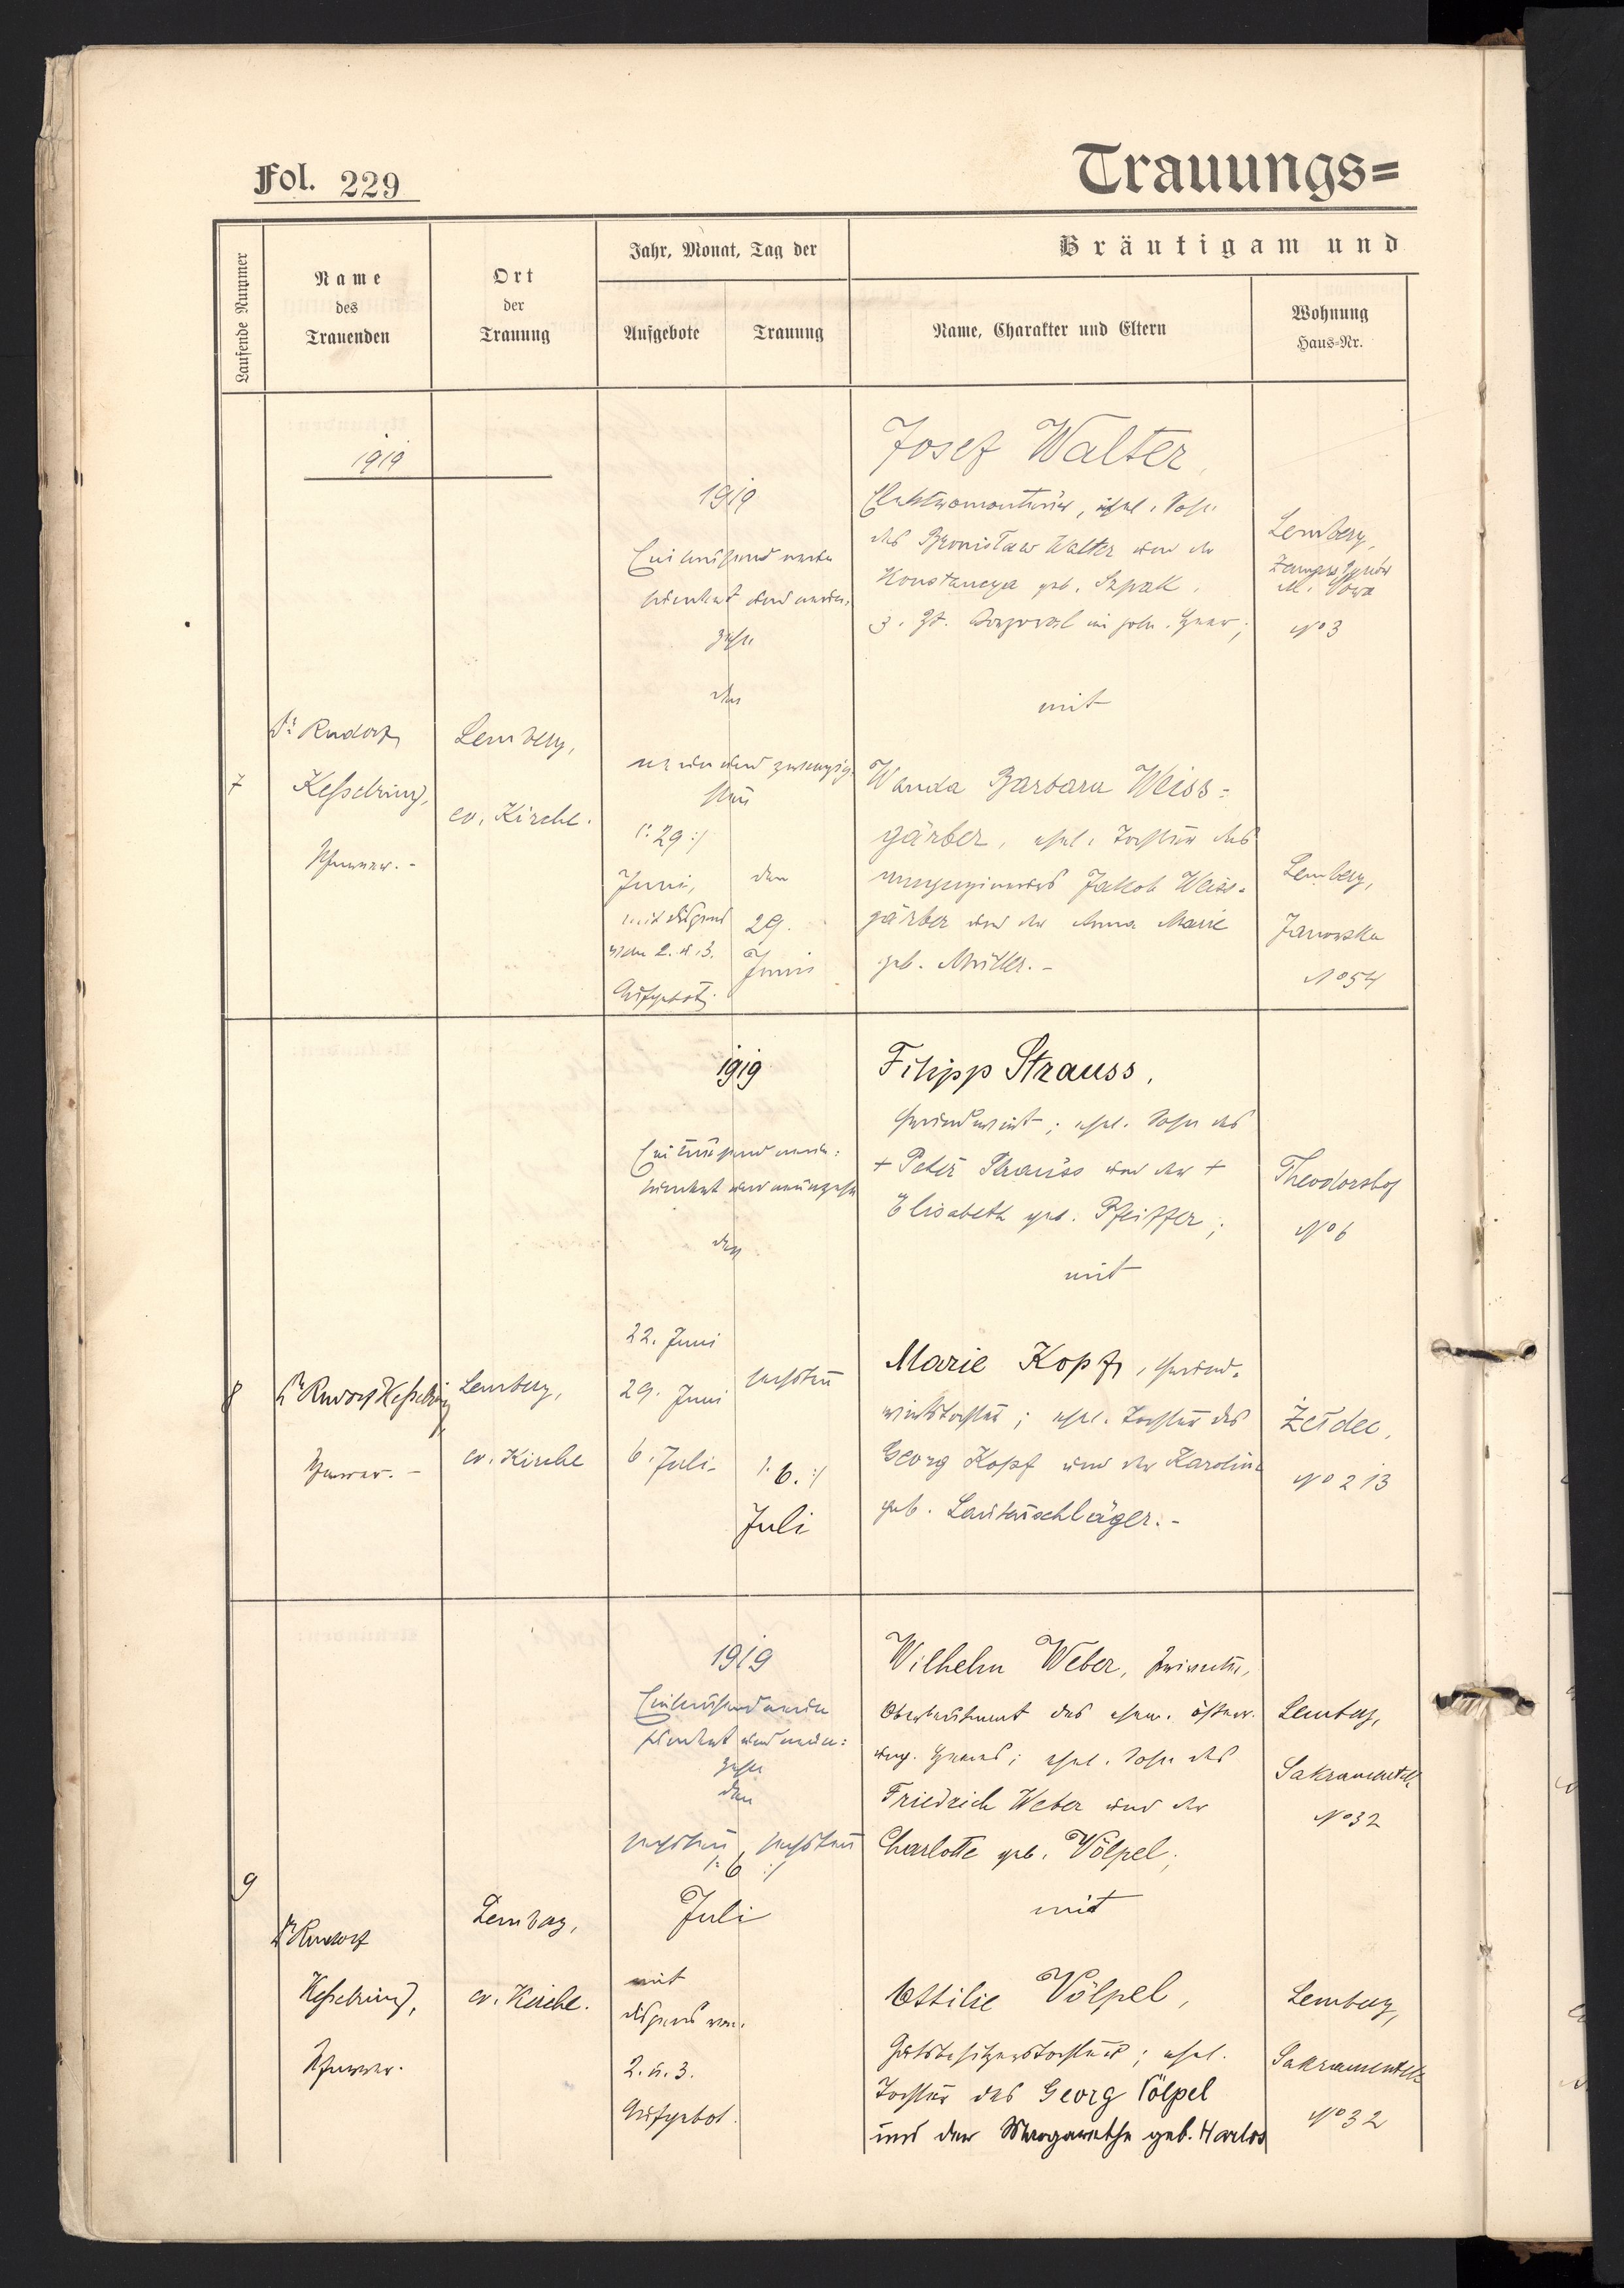 Fol. 229
Trauungs=
Laufende Nummer
Name
des
Trauenden
Ort
der
Trauung
Jahr, Monat, Tag der
Aufgebote
Trauung
Bräutigam und
Name, Charakter und Eltern
Wohnung
Haus-Nr.
1919
7
Dr Rudolf
Kesselring,
Pfarrer.-
Lemberg,
ev. Kirche.
1919
Eintausend neun
hundert und neun-
zehn
den
neun und zwanzig
sten
/: 29 :/
Juni,
mit Dispens
vom 2. u. 3.
Aufgebot.
den
29.
Juni
Josef Walter,
Elektromonteur, ehel. Sohn
des Bronisław Walter und der
Konstancya geb. Szpak,
z. Zt. Korporal im poln. Heer;
mit
Wanda Barbara Weiss-
gärber, ehel. Tochter des
Jakob Weiss-
gärber und der Anna Marie
geb. Müller.-
Lemberg,
No 3
Lemberg,
Janowska
No 54
8
Dr Rudolf Kesselring
Pfarrer.-
Lemberg,
ev. Kirche
1919
Eintausend neun-
hundert und neunzehn
den
22. Juni
29. Juni
6. Juli
sechsten
/: 6. :/
Juli
Filipp Strauss,
Grundwirt; ehel. Sohn des
+ Peter Strauss und der +
Elisabeth geb. Pfeiffer;
mit
Marie Kopf, Grund-
wirtstochter; ehel. Tochter des
Georg Kopf und der Karoline
geb. Lautenschläger.-
Theodorshof
No 6
Żełdec,
No 213
9
Dr Rudolf
Kesselring,
Pfarrer.
Lemberg,
ev. Kirche.
1919
Eintausend neun
hundert und neun-
zehn
den
sechsten sechsten
/: 6 :/
Juli
mit
Dispens vom
2. u. 3.
Aufgebot.
Wilhelm Weber,
Oberleutnant des ehem. österr.
ung. Heeres; ehel. Sohn des
Friedrich Weber und der
Charlotte geb. Völpel;
mit
Ottilie Völpel,
Gutsbesitzerstochter; ehel.
Tochter des Georg Völpel
und der Margarethe geb. Harlos
Lemberg,
No 32
Lemberg,
No 32